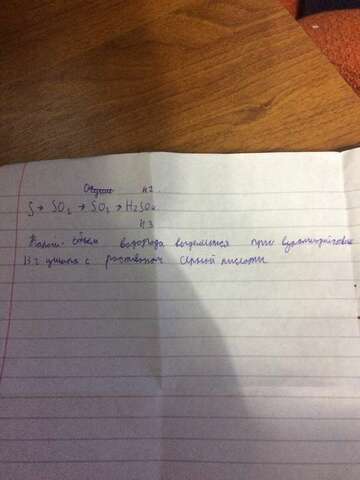 №2
S → SO2 → SO3 → H2SO4
№3
Какой объем водорода выделится при взаимодействии
13 г цинка с раствором серной кислоты